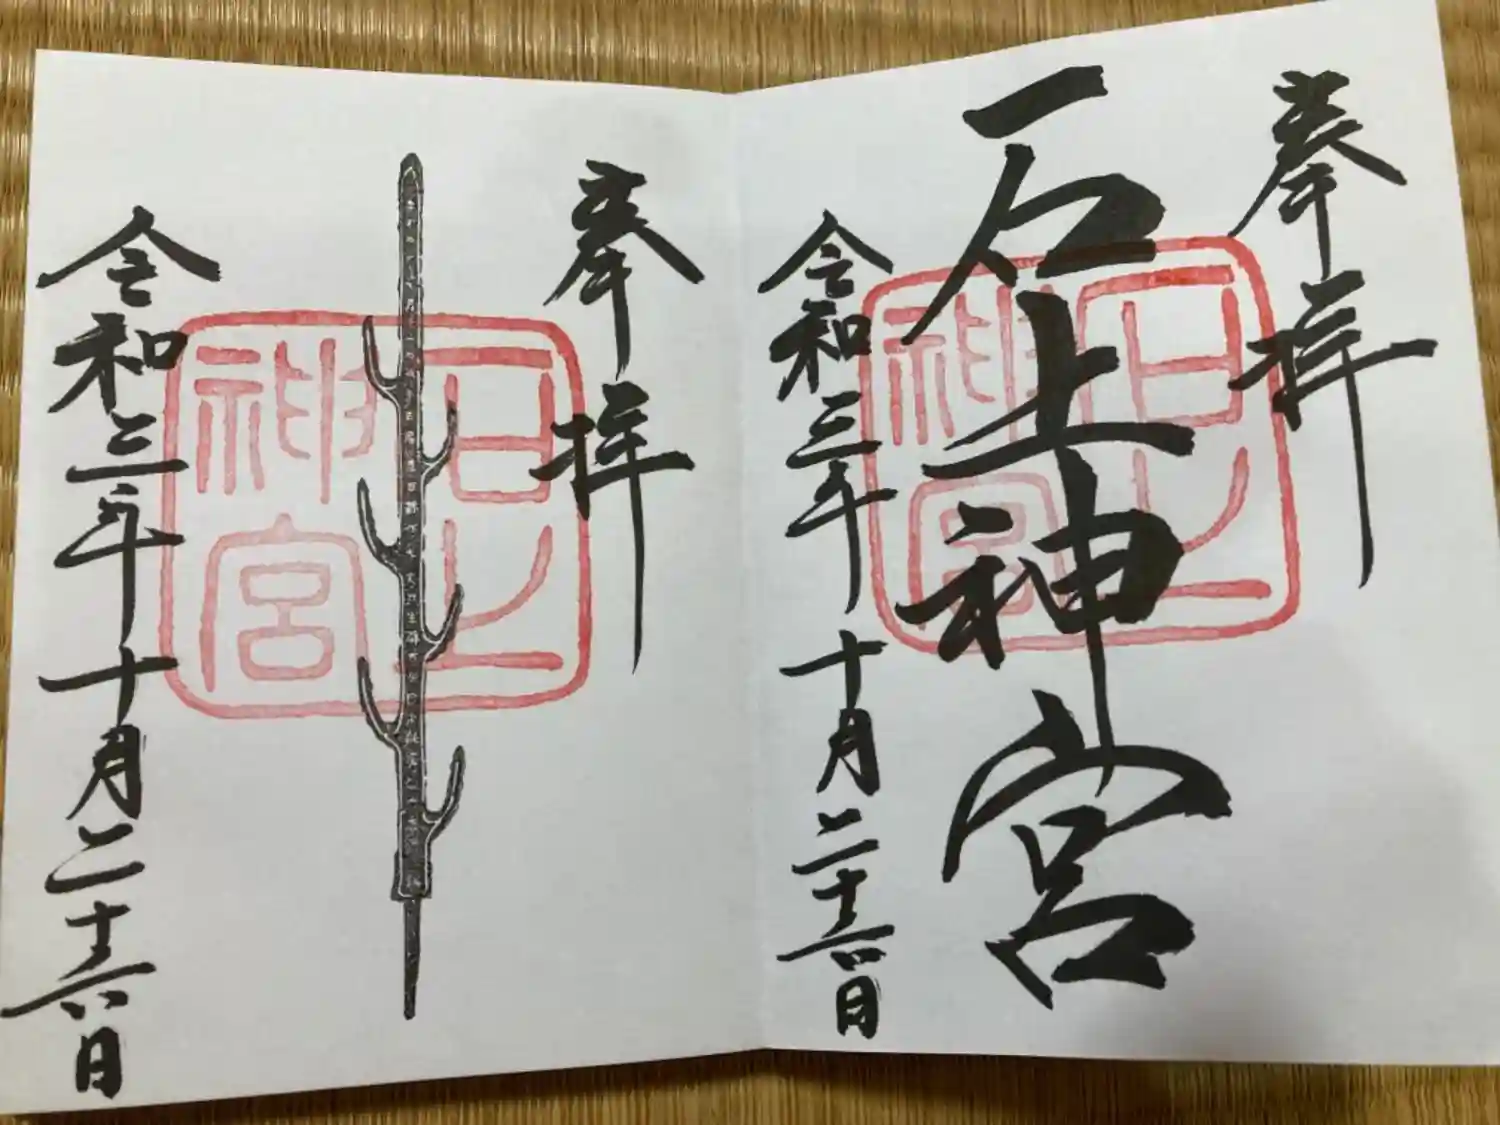 奉拝
石上神宮
令和三年十月二十六日
石上神宮
奉拝
令和三年十月二十六日
石上神宮